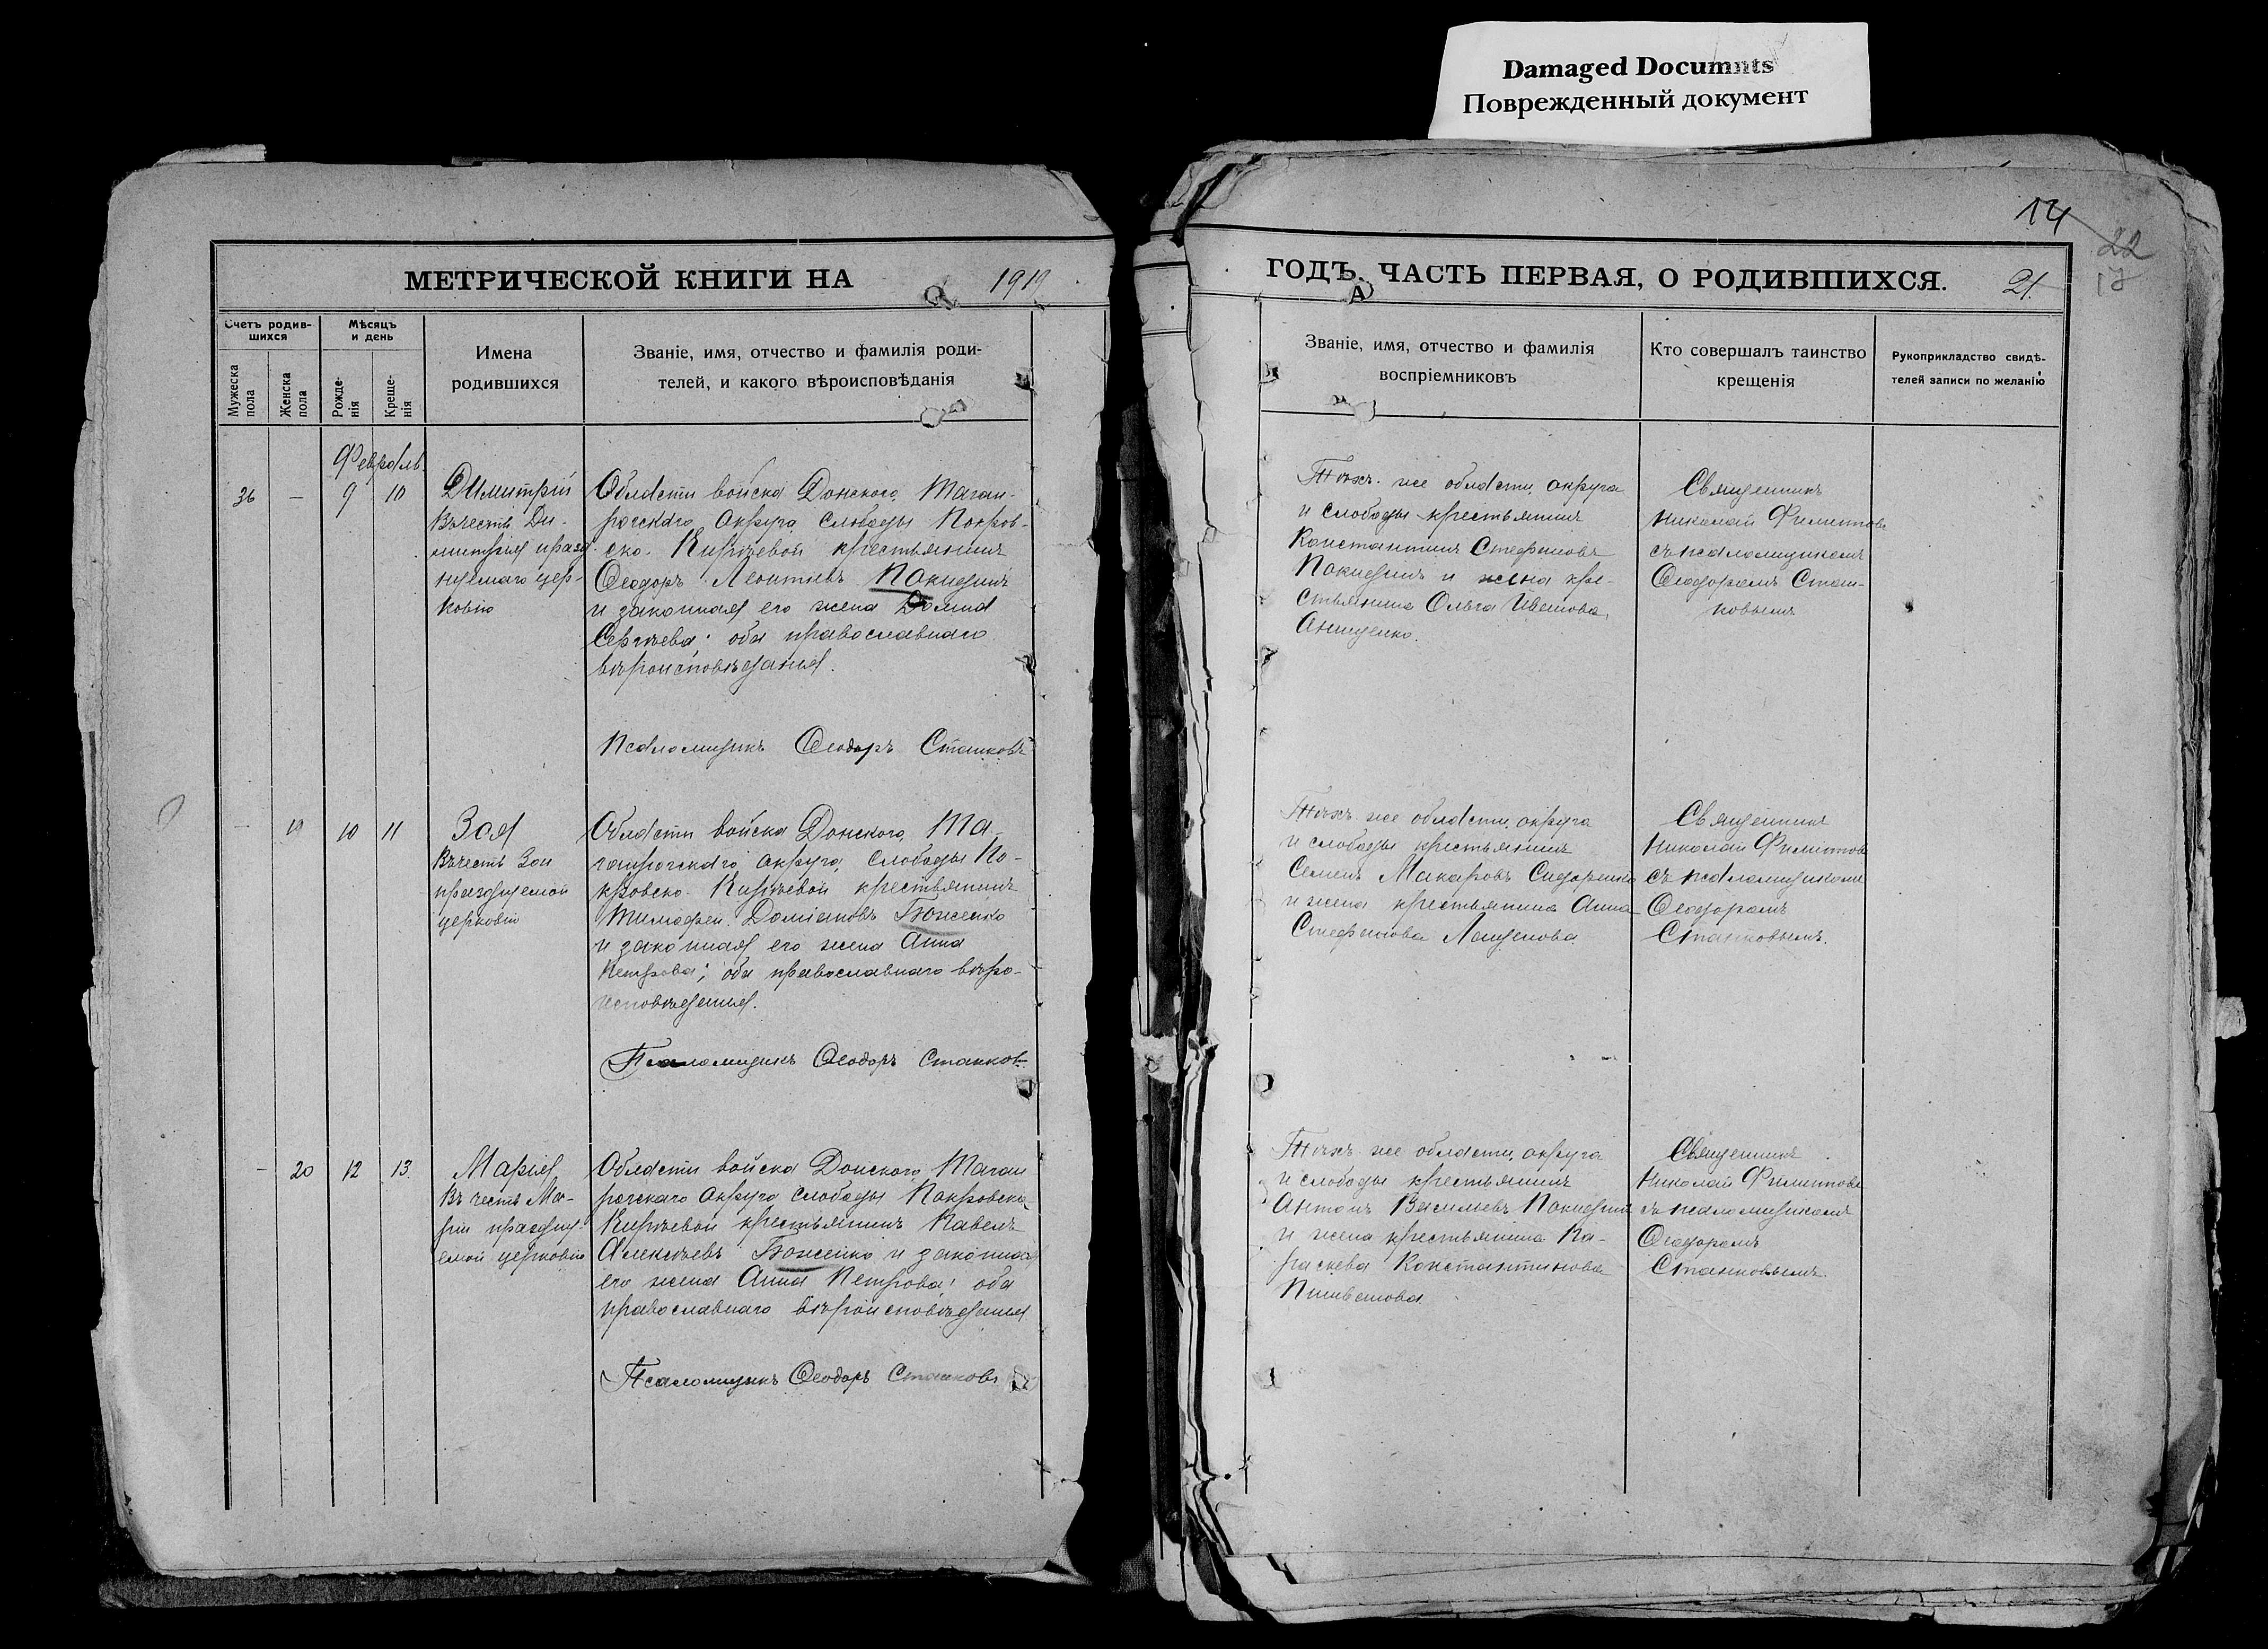 Damaged Documnts
Поврежденный документ
14
22
17
МЕТРИЧЕСКОЙ КНИГИ НА 1919
ГОДЪ. ЧАСТЬ ПЕРВАЯ, О РОДИВШИХСЯ.
21.
Счетъ родив-
шихся
Мужеска пола
Женска пола
Мѣсяцъ
и день
Рожде-
нія
Креще-
нія
Имена
родившихся
Званіе, имя, отчество и фамилія роди-
телей, и какого вѣроисповѣданія
Званіе, имя, отчество и фамилія
воспріемниковъ
Кто совершалъ таинство
крещенія
Рукоприкладство свидѣ-
телей записи по желанію
Февраль
36 — 9 10
Димитрій
Въ честь Ди-
митрія празд-
нуемаго цер-
ковію
Области войска Донского, Таган-
рогскаго округа слободы Покров-
ско-Кирѣевой крестьянинъ
Ѳеодоръ Леонтіевъ
и законная его жена
Сергѣева; оба православнаго
вѣроисповѣданія.
Псаломщикъ Ѳеодоръ Станковъ
Тѣхъ-же области, округа
и слободы крестьянинъ
Константинъ Стефановъ
и жена кре-
стьянина Ольга
Анищенко.
Священникъ
Николай Филипповъ
съ псаломщикомъ
Ѳеодоромъ Стан-
ковымъ
— 19 10 11
Зоя
Въ честь Зои
празднуемой
церковію
Области войска Донского, Та-
ганрогскаго округа, слободы По-
кровско-Кирѣевой крестьянинъ
Тимофей Доміановъ Боженко
и законная его жена Анна
Петрова; оба православнаго вѣро-
исповѣданія.
Псаломщикъ Ѳеодоръ Станковъ
Тѣхъ-же области, округа
и слободы крестьянинъ
Семенъ Макаровъ Сидоренко
и жена крестьянина Анна
Стефанова
Священникъ
Николай Филипповъ
съ псаломщикомъ
Ѳеодоромъ
Станковымъ.
— 20 12 13.
Марія
Въ честь Ма-
ріи праздну-
емой церковію
Области войска Донского, Таган
рогскаго округа слободы Покровско
Кирѣевой крестьянинъ Павелъ
Алексѣевъ Боженко и законная
его жена Анна Петрова; оба
православнаго вѣроисповѣданія
Псаломщикъ Ѳеодоръ Станковъ
Тѣхъ-же области, округа
и слободы крестьянинъ
Антонъ Васильевъ
и жена крестьянина Па-
раскева Константинова
Священникъ
Николай Филипповъ
съ псаломщикомъ
Ѳеодоромъ
Станковымъ.